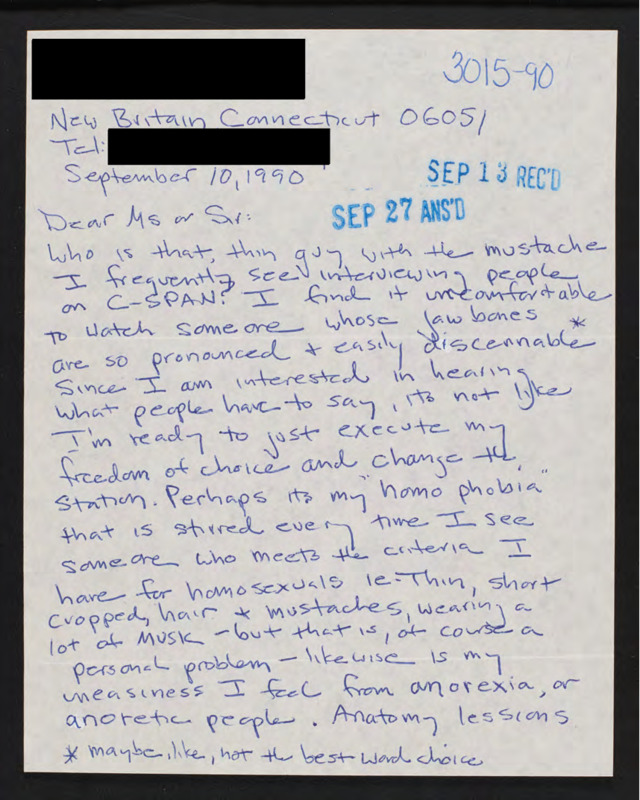 3015-90
New Britain Connecticut 06051
Tel:
September 10, 1990
SEP 13 REC'D
SEP 27 ANS'D
Dear Ms or Sir:
Who is that, thin guy with the mustache
I frequently see interviewing people
on C-SPAN? I find it uncomfortable
to watch someone whose jaw bones
are so pronounced + easily discennable*
Since I am interested in hearing
what people have to say, its not like
I'm ready to just execute my
freedom of choice and change the
station. Perhaps its my "homo phobia"
that is stirred every time I see
someone who meets the criteria I
have for homosexuals ie: Thin, short
cropped, hair + mustaches, wearing a
lot of musk - but that is, of course a
personal problem - likewise is my
uneasiness I feel from anorexia, or
anoretic people. Anatomy lessons
* maybe, like, not the best word choice